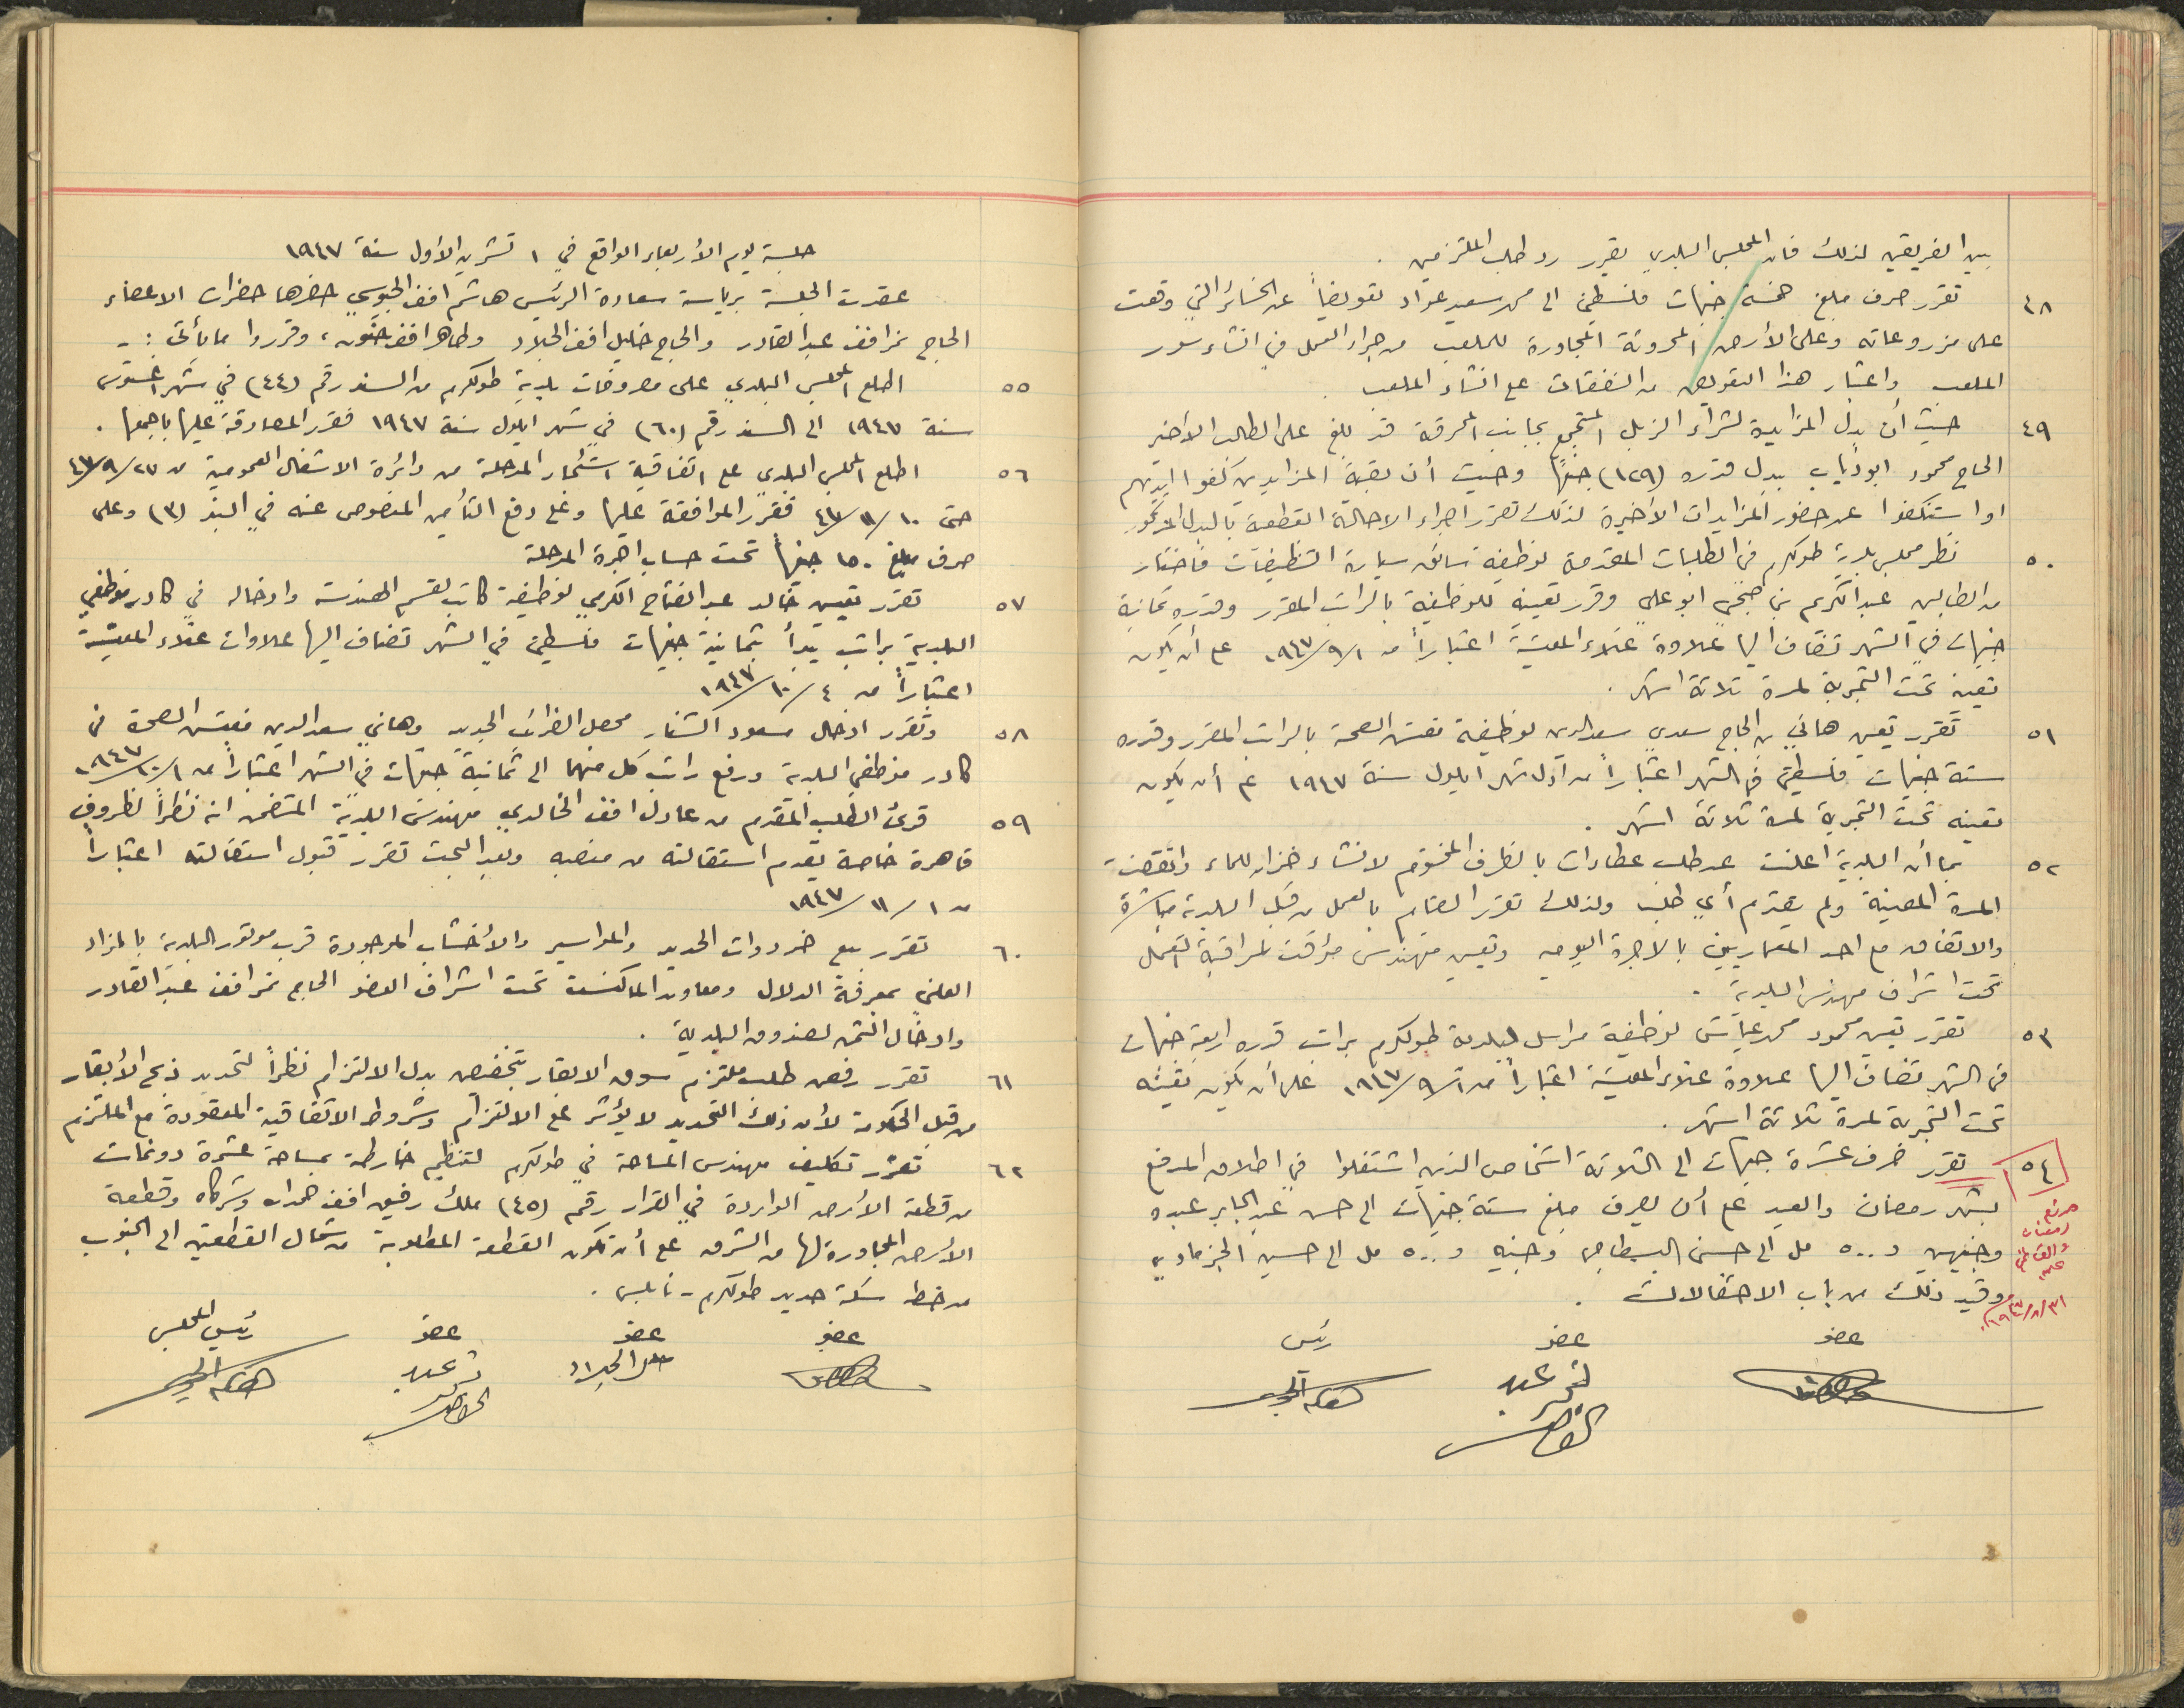 بين الفريقين لذلك فان المجلس البلدي يقرر رد طلب الملتزمين .
٤٨ تقرر صرف مبلغ خمسة جنيهات فلسطيني الى محمد سعيد عواد تعويضاً عن الخسائر التي وقعت
على مزروعاته وعلى الأرض المحروثة المجاورة للملعب من جراء العمل في انشاء سور
الملعب واعتبار هذا التعويض من النفقات على انشاء الملعب .
٤٩ حيث أن بدل المزايدة لشراء الزبل المتجمع بجانب المحرقة قد بلغ على الطالب الأخير
الحاج محمود ابو ذياب ببدل قدره (١٢٩) جنيهاً وحيث أن بقية المزايدين كفوا ايديهم
او استنكفوا عن حضور المزايدات الأخيرة لذلك تقرر اجراء الاحالة القطعية بالبدل المذكور
٥٠ نظر مجلس بلدية طولكرم في الطلبات المقدمة لوظيفة سائق سيارة التنظيفات فاختار
من الطالبين عبد الكريم بن صبحي ابو علي وقرر تعيينه للوظيفة بالراتب المقرر وقدره ثمانية
جنيهات في الشهر تضاف اليها علاوة غلاء المعيشة اعتباراً من ١/٩/١٩٤٧ على أن يكون
تعيينه تحت التجربة لمدة ثلاثة اشهر .
٥١ تقرر تعيين هاني بن الحاج سعدي سعد الدين لوظيفة مفتش الصحة بالراتب المقرر وقدره
ستة جنيهات فلسطيني في الشهر اعتباراً من أول شهر ايلول سنة ١٩٤٧ على أن يكون
تعيينه تحت التجربة لمدة ثلاثة اشهر .
٥٢ بما أن البلدية اعلنت عن طلب عطاءات بالظرف المختوم لانشاء خزان للماء وانقضت
المدة المعينة ولم يتقدم أي طلب ولذلك تقرر القيام بالعمل من قبل البلدية مباشرة
والاتفاق مع احد المعماريين بالاجرة اليومية وتعيين مهندس مؤقت لمراقبة العمل
تحت اشراف مهندس البلدية .
٥٣ تقرر تعيين محمود محمد عياش لوظيفة مراسل لبلدية طولكرم براتب قدره اربعة جنيهات
في الشهر تضاف اليها علاوة غلاء المعيشة اعتباراً من ١/٩/١٩٤٧ على أن يكون تعيينه
تحت التجربة لمدة ثلاثة اشهر .
٥٤ تقرر صرف عشرة جنيهات الى الثلاثة اشخاص الذين اشتغلوا في اطلاق المدفع
بشهر رمضان والعيد على أن يصرف مبلغ ستة جنيهات الى حسن عبد الجابر عبده
وجنيهين و ٥٠٠ مل الى حسن البسطامي وجنيه و ٥٠٠ مل الى حسين الجزماوي
وقيد ذلك من باب الاحتفالات .
مدفع
رمضان
٣١/٨/١٩٤٧
عضو عضو رئيس
نمر عبد
القادر
هاشم الجيوسي
جلسة يوم الأربعاء الواقع في ١ تشرين الأول سنة ١٩٤٧
عقدت الجلسة برياسة سعادة الرئيس هاشم افندي الجيوسي حضرها حضرات الاعضاء
الحاج نمر افندي عبد القادر والحاج خليل افندي الجلاد وطاهر افندي حنون ، وقرروا ما يأتي :-
٥٥ اطلع المجلس البلدي على مصروفات بلدية طولكرم من السند رقم (٤٤) في شهر اغسطوس
سنة ١٩٤٧ الى السند رقم (٦٠) في شهر ايلول سنة ١٩٤٧ فقرر المصادقة عليها باجمعها .
٥٦ اطلع المجلس البلدي على اتفاقية استئجار المدحلة من دائرة الاشغال العمومية من ٢٧/٩/٤٧
حتى ١٠/١١/٤٧ فقرر الموافقة عليها وعلى دفع التأمين المنصوص عنه في البند (٣) وعلى
صرف مبلغ ١٥٠ جنيهاً تحت حساب اجرة المدحلة
٥٧ تقرر تعيين خالد عبد الفتاح الكرمي لوظيفة كاتب لقسم الهندسة وادخاله في كادر موظفي
البلدية براتب يبدأ بثمانية جنيهات فلسطيني في الشهر تضاف اليها علاوات غلاء المعيشة
اعتباراً من ٤/١٠/١٩٤٧
٥٨ وتقرر ادخال مسعود الشنار محصل الضرائب الجديد وهاني سعد الدين مفتش الصحة في
كادر موظفي البلدية ورفع راتب كل منهما الى ثمانية جنيهات في الشهر اعتباراً من ١/١٠/١٩٤٧
٥٩ قرئ الطلب المقدم من عادل افندي الخالدي مهندس البلدية المتضمن انه نظراً لظروف
قاهرة خاصة يقدم استقالته من منصبه وبعد البحث تقرر قبول استقالته اعتباراً
من ١/١١/١٩٤٧
٦٠ تقرر بيع خردوات الحديد والمواسير والأخشاب الموجودة قرب موتور البلدية بالمزاد
العلني بمعرفة الدلال ومعاون الماكنست تحت اشراف العضو الحاج نمر افندي عبد القادر
وادخال الثمن لصندوق البلدية .
٦١ تقرر رفض طلب ملتزم سوق الابقار بتخفيض بدل الالتزام نظراً لتحديد ذبح الأبقار
من قبل الحكومة لأن ذلك التحديد لا يؤثر على الالتزام وشروط الاتفاقية المعقودة مع الملتزم
٦٢ تقرر تكليف مهندس المساحة في طولكرم لتنظيم خارطة بمساحة عشرة دونمات
من قطعة الأرض الواردة في القرار رقم (٤٥) ملك رفيق افندي حمدان وشركاه وقطعة
الأرض المجاورة لها من الشرق على أن تكون القطعة المطلوبة من شمال القطعتين الى الجنوب
من خط سكة حديد طولكرم - نابلس .
عضو عضو عضو رئيس المجلس
خليل الجلاد
نمر عبد
القادر
هاشم الجيوسي